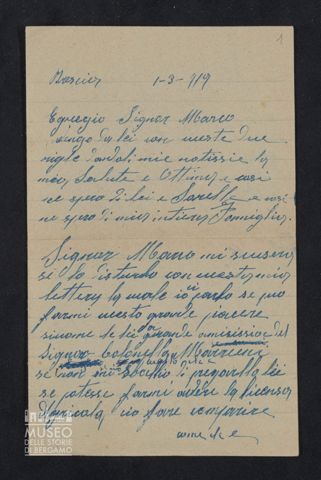 1
1-3-919
Egregio Signor Marco
vengo da lei con queste due
righe dandoli mie notissie la
mia Salute e Ottima e così
ne spero di lei e Sorella e così
ne spero di mia intiera Famiglia.
Signor Marco mi scusera
se lo disturbo con questa mia
lettera la quale io parlo se può
farmi questo grande piacere
siccome lei grande amicissimo del
Signor Colonello
se non sbaglio di pregarla lei
se potesse farmi avere la licensa
Agricola io fare
come che e
MUSEO
DELLE STORIE
DI BERGAMO